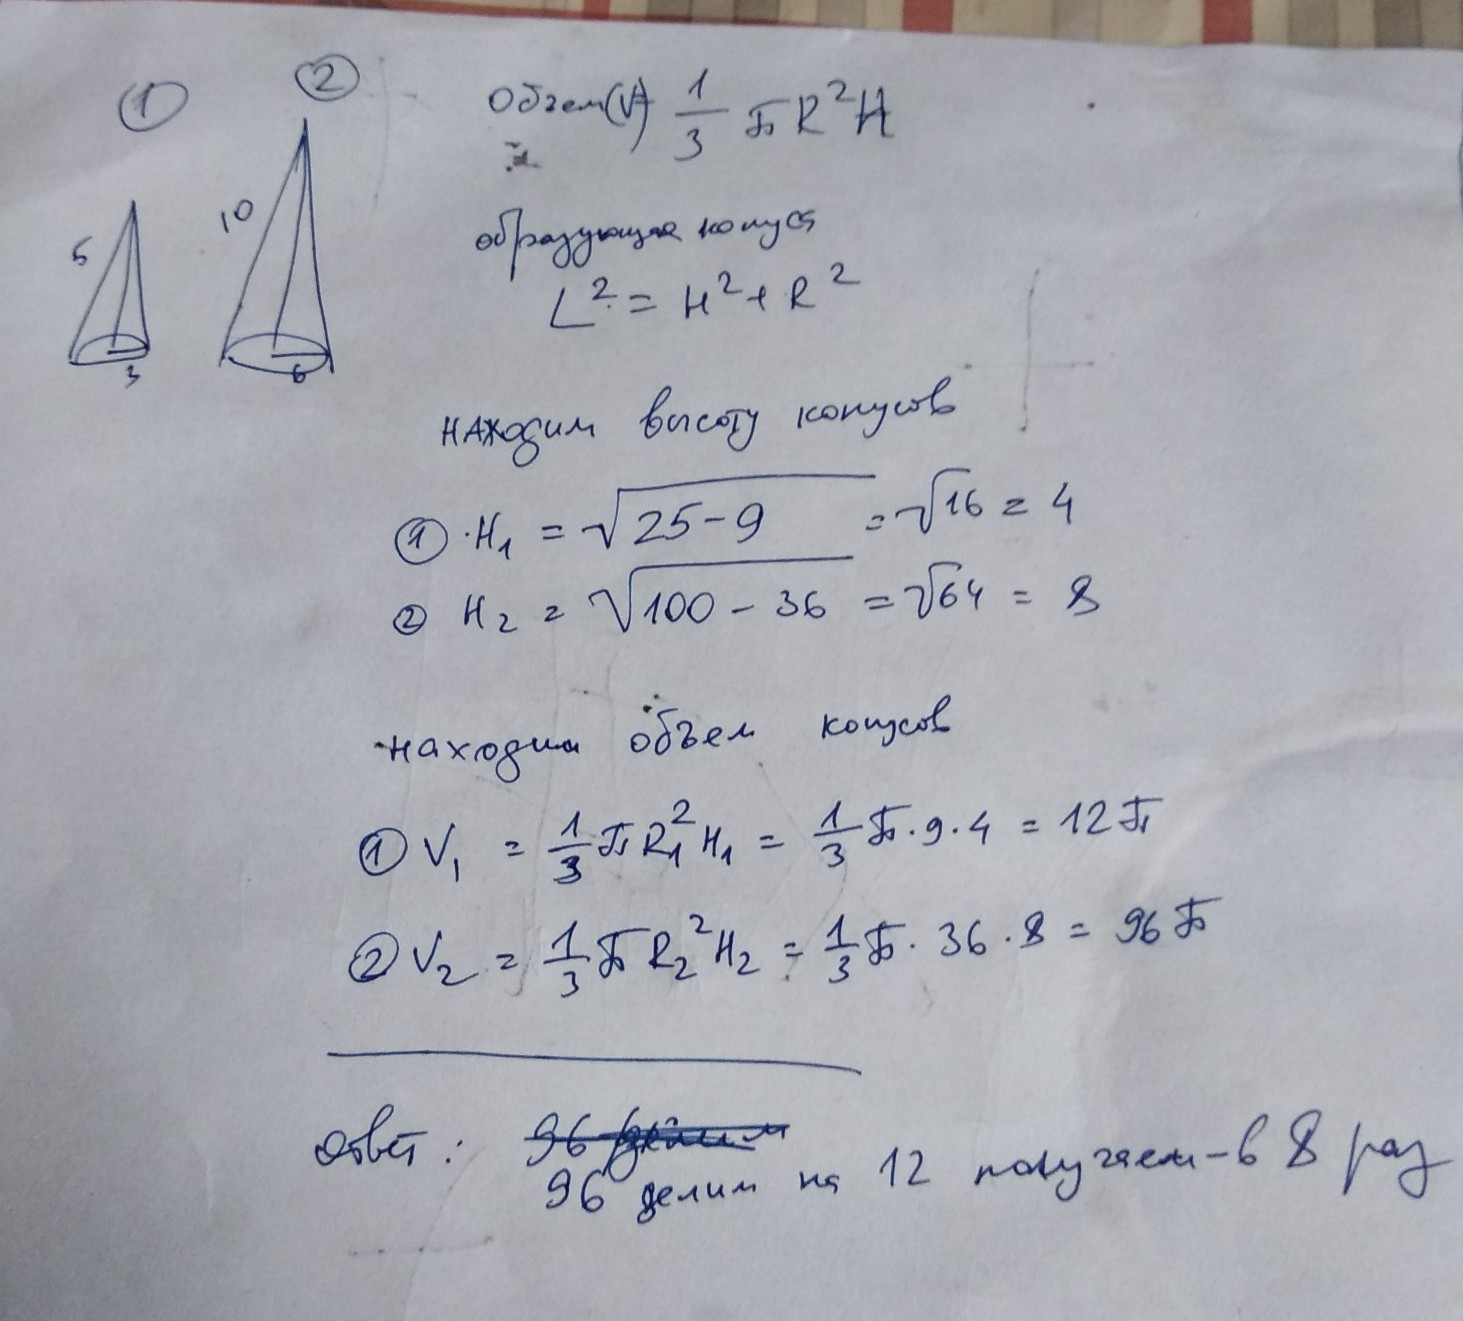 ① ②
Объем(V)= 1/3 π R²H
5 10
3 6
образующая конуса
L² = H² + R²
находим высоту конусов
① H₁ = √25-9 = √16 = 4
② H₂ = √100 - 36 = √64 = 8
находим объем конусов
① V₁ = 1/3 π R₁² H₁ = 1/3 π · 9 · 4 = 12 π
② V₂ = 1/3 π R₂² H₂ = 1/3 π · 36 · 8 = 96 π
ответ: 96 делим
96 делим на 12 получаем - в 8 раз